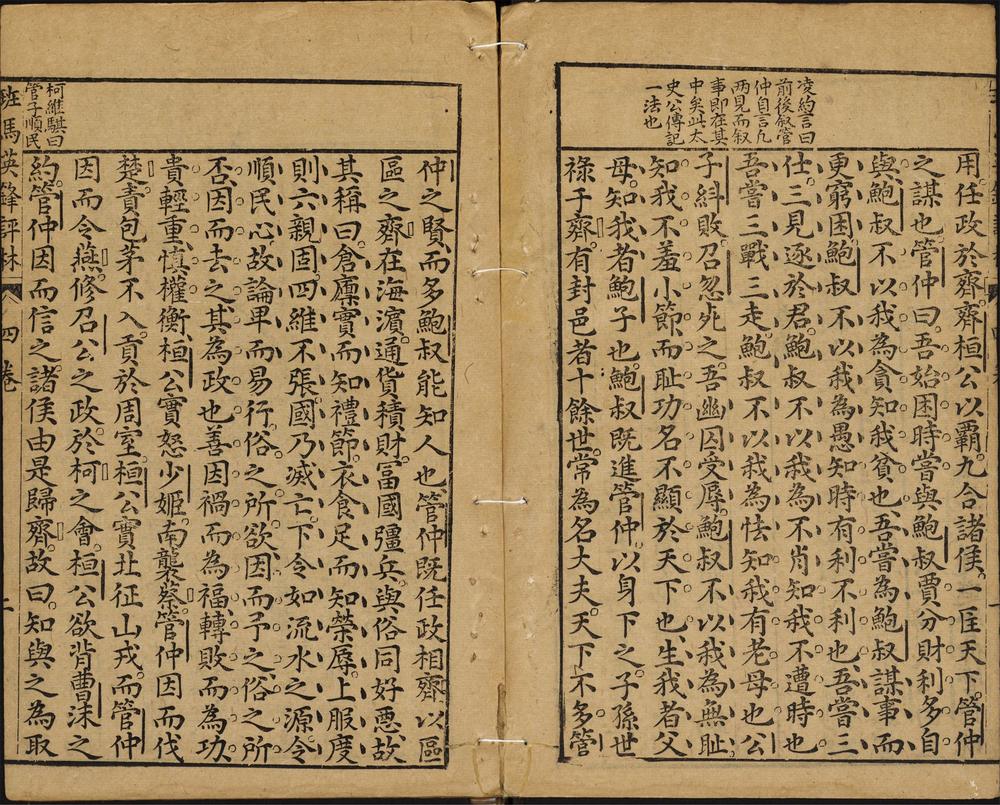 凌約言曰
前後叙管
仲自言凡
两見而叙
事即在其
中矣此太
史公傳記
一法也
用任政於齊齊桓公以霸九合諸侯一匡天下管仲
之謀也管仲曰吾始困時嘗與鮑叔賈分財利多自
與鮑叔不以我為貪知我貧也吾嘗為鮑叔謀事而
更窮困鮑叔不以我為愚知時有利不利也吾嘗三
仕三見逐於君鮑叔不以我為不肖知我不遭時也
吾嘗三戰三走鮑叔不以我為怯知我有老母也公
子糾敗召忽死之吾幽囚受辱鮑叔不以我為無耻
知我不羞小節而耻功名不顯於天下也生我者父
母知我者鮑子也鮑叔既進管仲以身下之子孫世
祿于齊有封邑者十餘世常為名大夫天下不多管
仲之賢而多鮑叔能知人也管仲既任政相齊以區
區之齊在海濵通貨積財富國彊兵與俗同好惡故
其稱曰倉廩實而知禮節衣食足而知榮辱上服度
則六親固四維不張國乃滅亡下令如流水之源令
順民心故論卑而易行俗之所欲因而予之俗之所
否因而去之其為政也善因禍而為福轉敗而為功
貴輕重慎權衡桓公實怒少姬南襲蔡管仲因而伐
楚責包茅不入貢於周室桓公實北征山戎而管仲
因而令燕修召公之政於柯之會桓公欲背曹沬之
約管仲因而信之諸侯由是歸齊故曰知與之為取
柯維騏曰
管子順民
班馬英鋒評林
四卷
二